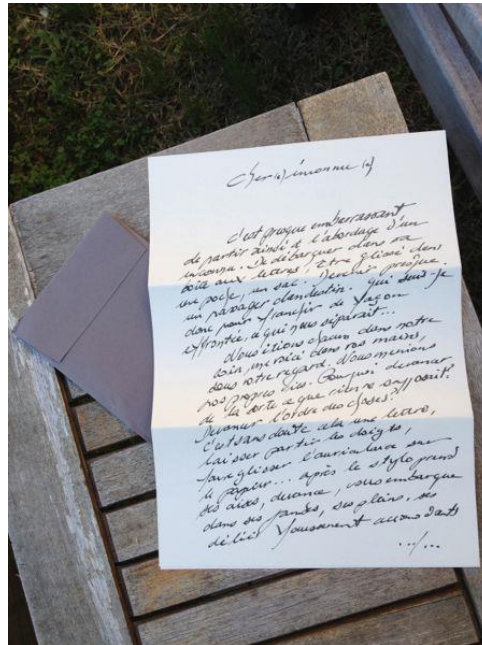 Cher(e) inconnu(e)
C'est presque embarrassant
de partir ainsi à l'abordage d'un
inconnu. De débarquer dans sa
boîte aux lettres, être glissé dans
une poche, un sac. Devenir presque
un passager clandestin. Qui suis-je
donc pour franchir de façon
effrontée, ce qui nous séparait...
Nous étions chacun dans notre
coin, me voici dans vos mains,
sous votre regard. Nous menions
nos propres vies. Pourquoi devancer
de la sorte ce que rien ne supposait.
Devancer l'ordre des choses?
C'est sans doute cela une lettre,
laisser partir les doigts,
faire glisser l'auriculaire sur
le papier... après le stylo prend
ses aises, devance, vous embarque
dans ses pensées, ses pleins, ses
déliés
.../...